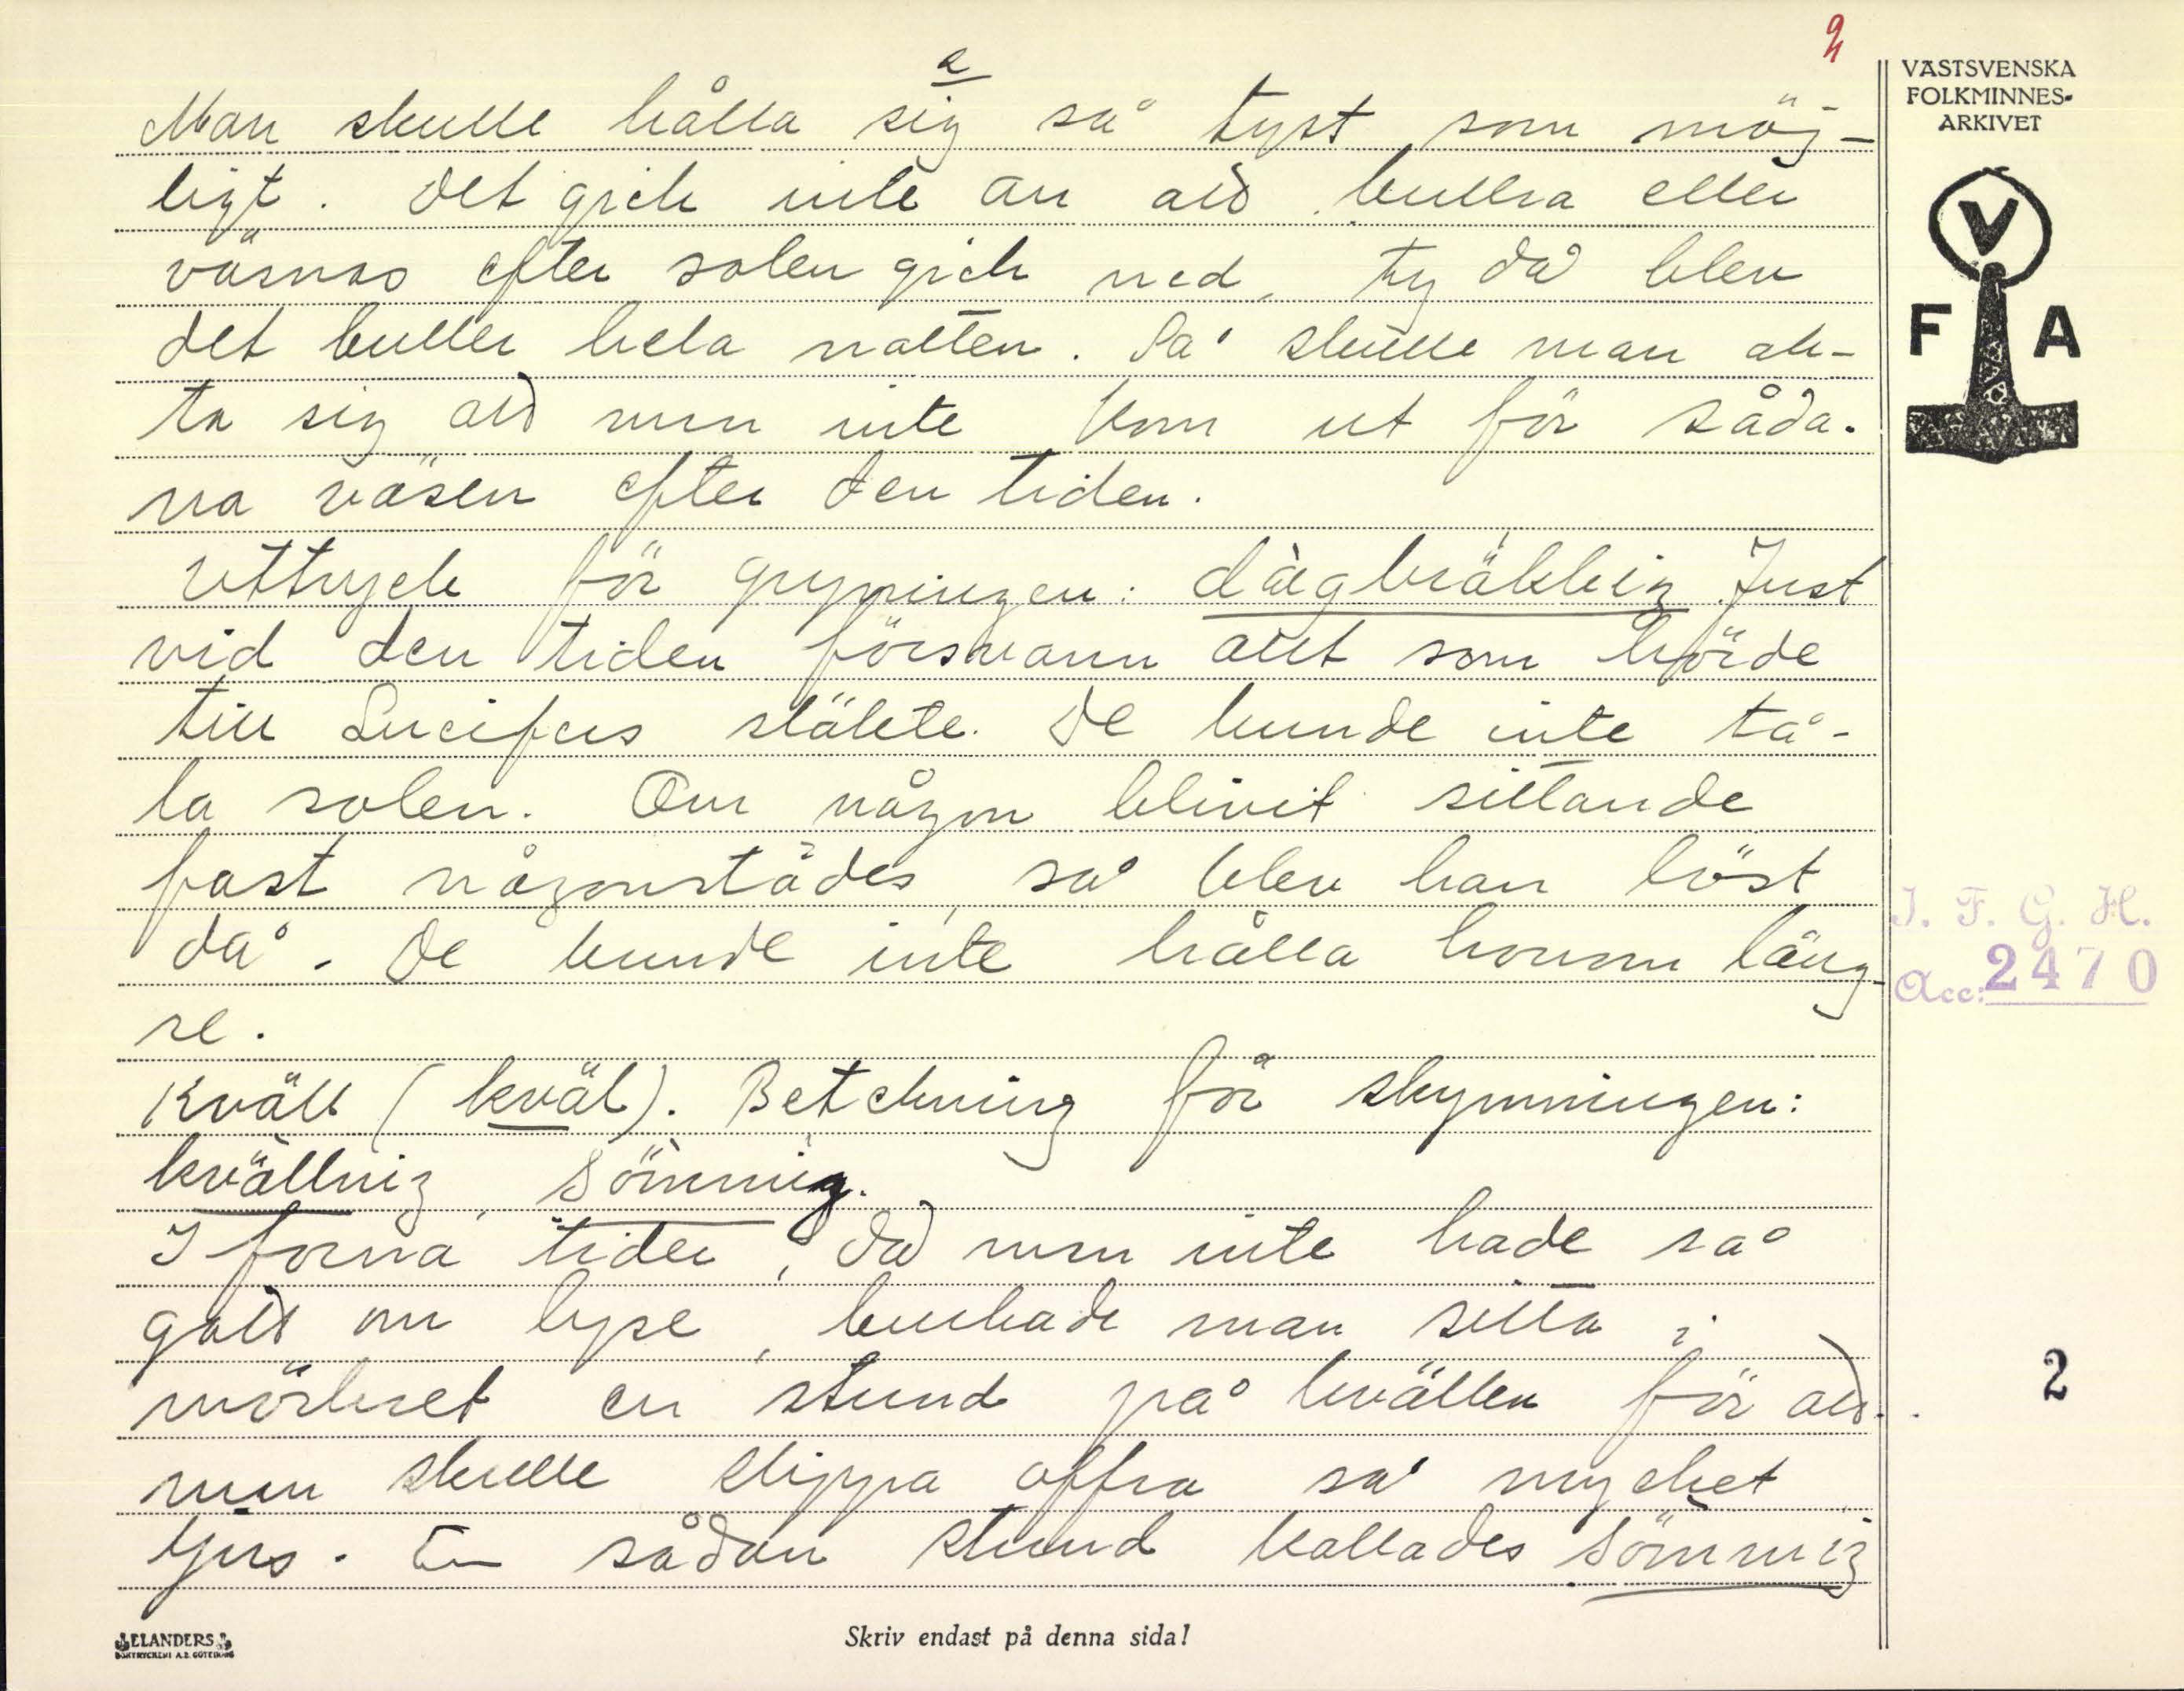 2
Man skulle hålla sig så tyst som möj-
ligt. Det gick inte an att bullra eller
väsnas efter solen gick ned, ty då blev
det buller hela natten. Så skulle man ak-
ta sig att man inte kom ut för såda-
na väsen efter den tiden.
Uttryck för gryningen: dàgbräkkiŋ. Just
vid den tiden försvann allt som hörde
till Lucifers släkte. De kunde inte tå-
la solen. Om någon blivit sittande
fast någonstädes, så blev han löst
då. De kunde inte hålla honom läng-
re.
Kväll (kväl). Beteckning för skymningen:
kvällniŋ, sömmiŋ.
I forna tider, då man inte hade så
gott om lyse, brukade man sitta i
mörkret en stund på kvällen för att
man skulle slippa offra så mycket
ljus. En sådan stund kallades sömmiŋ
VÄSTSVENSKA
FOLKMINNES-
ARKIVET
V
F A
I. F. G. H.
Acc: 2470
2
ELANDERS
BOKTRYCKERI A.B. GÖTEBORG
Skriv endast på denna sida!